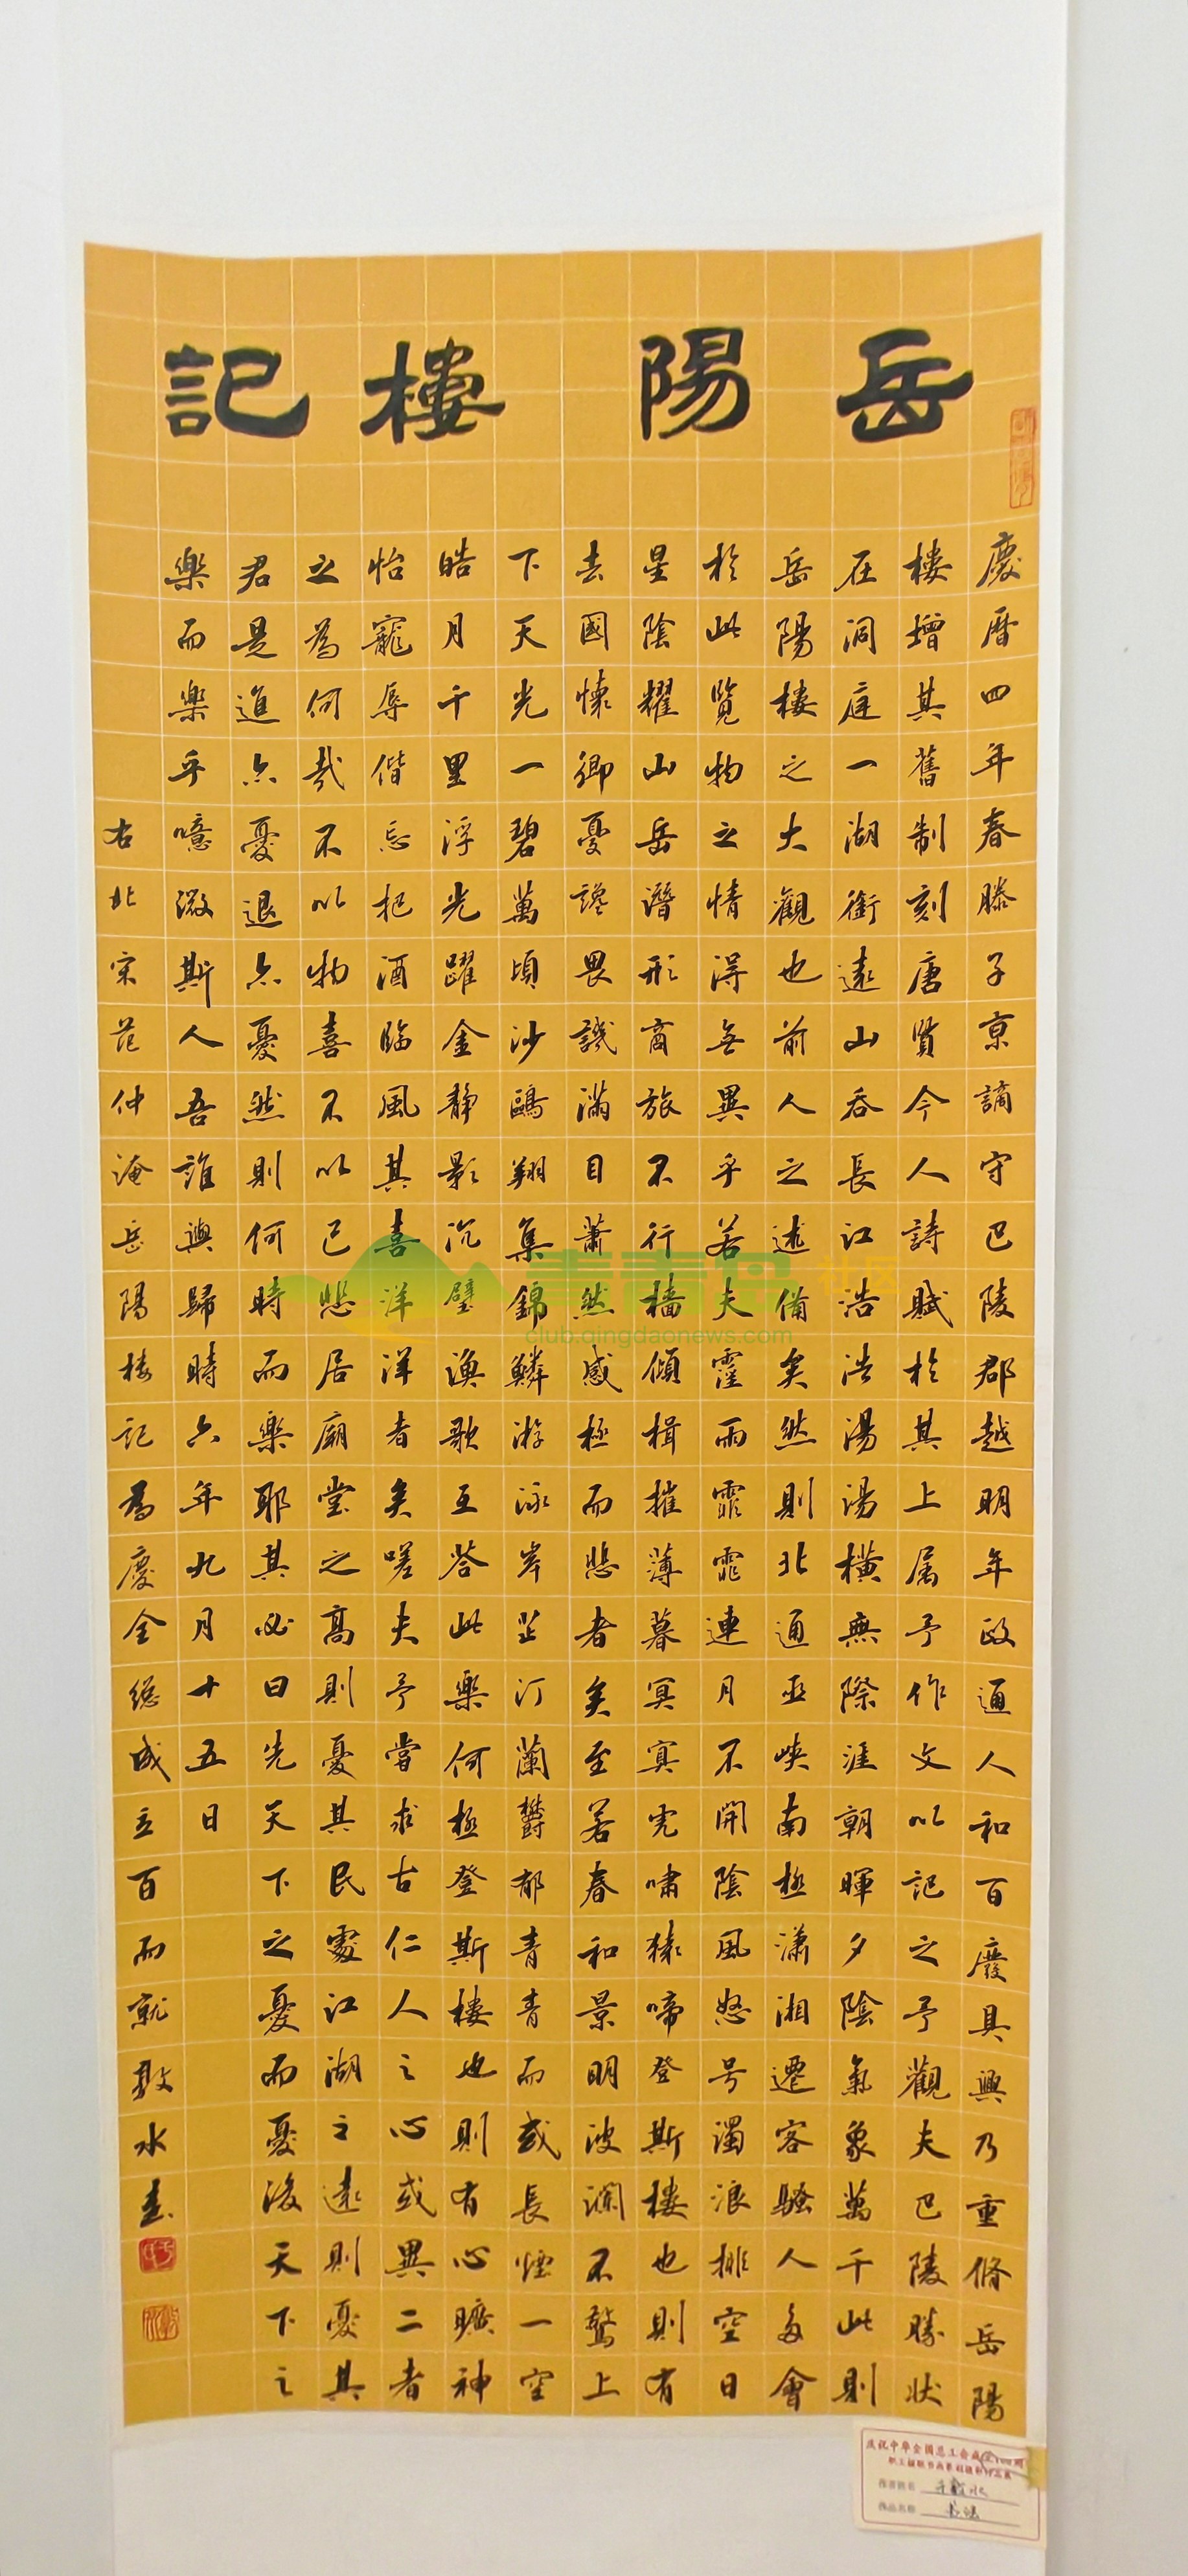 岳陽樓記
慶曆四年春滕子京謫守巴陵郡越明年政通人和百廢具興乃重脩岳陽
樓增其舊制刻唐賢今人詩賦於其上属予作文以記之予觀夫巴陵勝狀
在洞庭一湖銜遠山吞長江浩浩湯湯橫無際涯朝暉夕陰氣象萬千此則
岳陽樓之大觀也前人之述備矣然則北通巫峽南極瀟湘遷客騷人多會
於此覽物之情得無異乎若夫霪雨霏霏連月不開陰風怒号濁浪排空日
星陰耀山岳潛形商旅不行檣傾楫摧薄暮冥冥虎嘯猿啼登斯樓也則有
去國懷鄉憂讒畏譏滿目蕭然感極而悲者矣至若春和景明波瀾不驚上
下天光一碧萬頃沙鷗翔集錦鱗游泳岸芷汀蘭鬱郁青青而或長煙一空
皓月千里浮光躍金靜影沉璧漁歌互答此樂何極登斯樓也則有心曠神
怡寵辱偕忘把酒臨風其喜洋洋者矣嗟夫予嘗求古仁人之心或異二者
之為何哉不以物喜不以己悲居廟堂之高則憂其民處江湖之遠則憂其
君是進亦憂退亦憂然則何時而樂耶其必曰先天下之憂而憂後天下之
樂而樂乎噫微斯人吾誰與歸時六年九月十五日
右北宋范仲淹岳陽樓記為慶全總成立百而就敦水書
青青岛社区
club.qingdaonews.com
庆祝中华全国总工会成立100周
作者姓名
作品名称 书法